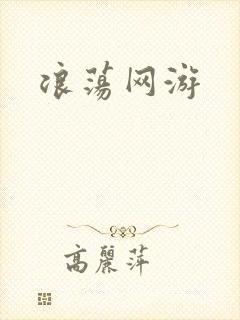 浪荡网游
高麗萍